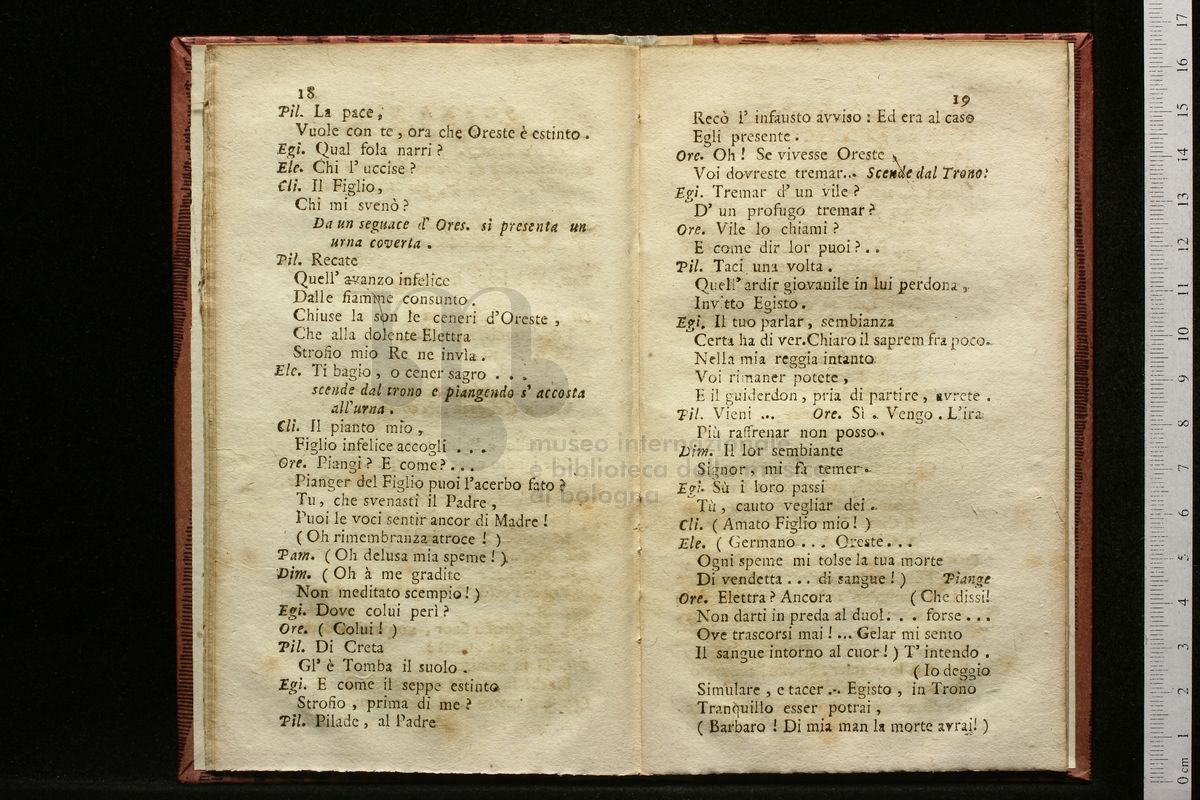 18
Pil. La pace,
Vuole con te, ora che Oreste è estinto.
Egi. Qual fola narri?
Ele. Chi l' uccise?
Cli. Il Figlio,
Chi mi svenò?
Da un seguace d' Ores. si presenta un
urna coverta.
Pil. Recate
Quell' avanzo infelice
Dalle fiamme consunto.
Chiuse la son le ceneri d'Oreste,
Che alla dolente Elettra
Strofio mio Re ne invìa.
Ele. Ti bagio, o cener sagro...
scende dal trono e piangendo s' accosta
all'urna.
Cli. Il pianto mio,
Figlio infelice accogli...
Ore. Piangi? E come?...
Pianger del Figlio puoi l'acerbo fato?
Tu, che svenasti il Padre,
Puoi le voci sentir ancor di Madre!
(Oh rimembranza atroce!)
Pam. (Oh delusa mia speme!)
Dim. (Oh à me gradite
Non meditato scempio!)
Egi. Dove colui perì?
Ore. (Colui!)
Pil. Di Creta
Gl' è Tomba il suolo.
Egi. E come il seppe estinto
Strofio, prima di me?
Pil. Pilade, al Padre
19
Recò l' infausto avviso: Ed era al caso
Egli presente.
Ore. Oh! Se vivesse Oreste,
Voi dovreste tremar... Scende dal Trono.
Egi. Tremar d' un vile?
D' un profugo tremar?
Ore. Vile lo chiami?
E come dir lor puoi?..
Pil. Taci una volta.
Quell' ardir giovanile in lui perdona,
Invitto Egisto.
Egi. Il tuo parlar, sembianza
Certa ha di ver. Chiaro il saprem fra poco.
Nella mia reggia intanto
Voi rimaner potete,
E il guiderdon, pria di partire, avrete.
Pil. Vieni... Ore. Sì. Vengo. L'ira
Più raffrenar non posso.
Dim. Il lor sembiante
Signor, mi fà temer.
Egi. Sù i loro passi
Tù, cauto vegliar dei.
Cli. (Amato Figlio mio!)
Ele. (Germano... Oreste...
Ogni speme mi tolse la tua morte
Di vendetta... di sangue!) Piange
Ore. Elettra? Ancora (Che dissi!
Non darti in preda al duol... forse...
Ove trascorsi mai!... Gelar mi sento
Il sangue intorno al cuor!) T' intendo.
(Io deggio
Simulare, e tacer... Egisto, in Trono
Tranquillo esser potrai,
(Barbaro! Di mia man la morte avrai!)
museo internazionale
e biblioteca della musica
di bologna
0 cm 1 2 3 4 5 6 7 8 9 10 11 12 13 14 15 16 17